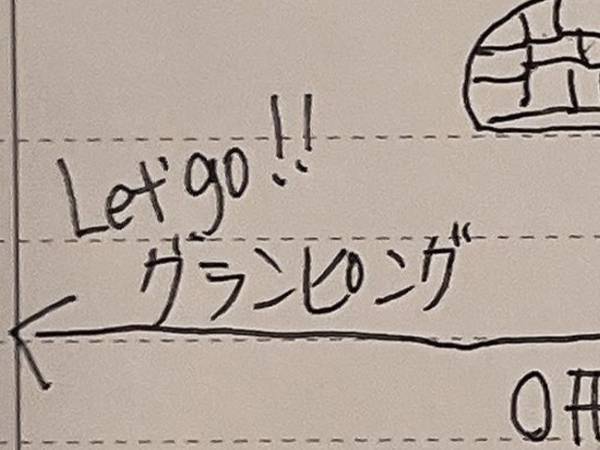 Let' go!!
グランピング